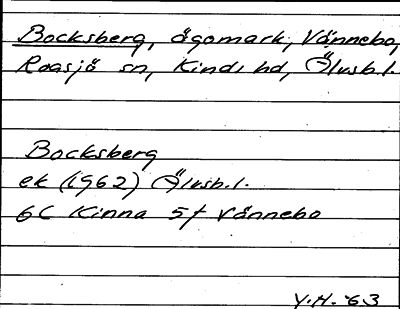 Bocksberg, ägomark, Vännebo,
Roasjö sn, Kinds hd, Älvsb.l.
Bocksberg
ek (1962) Älvsb.l.
6C Kinna 5f Vännebo
Y.H. 63